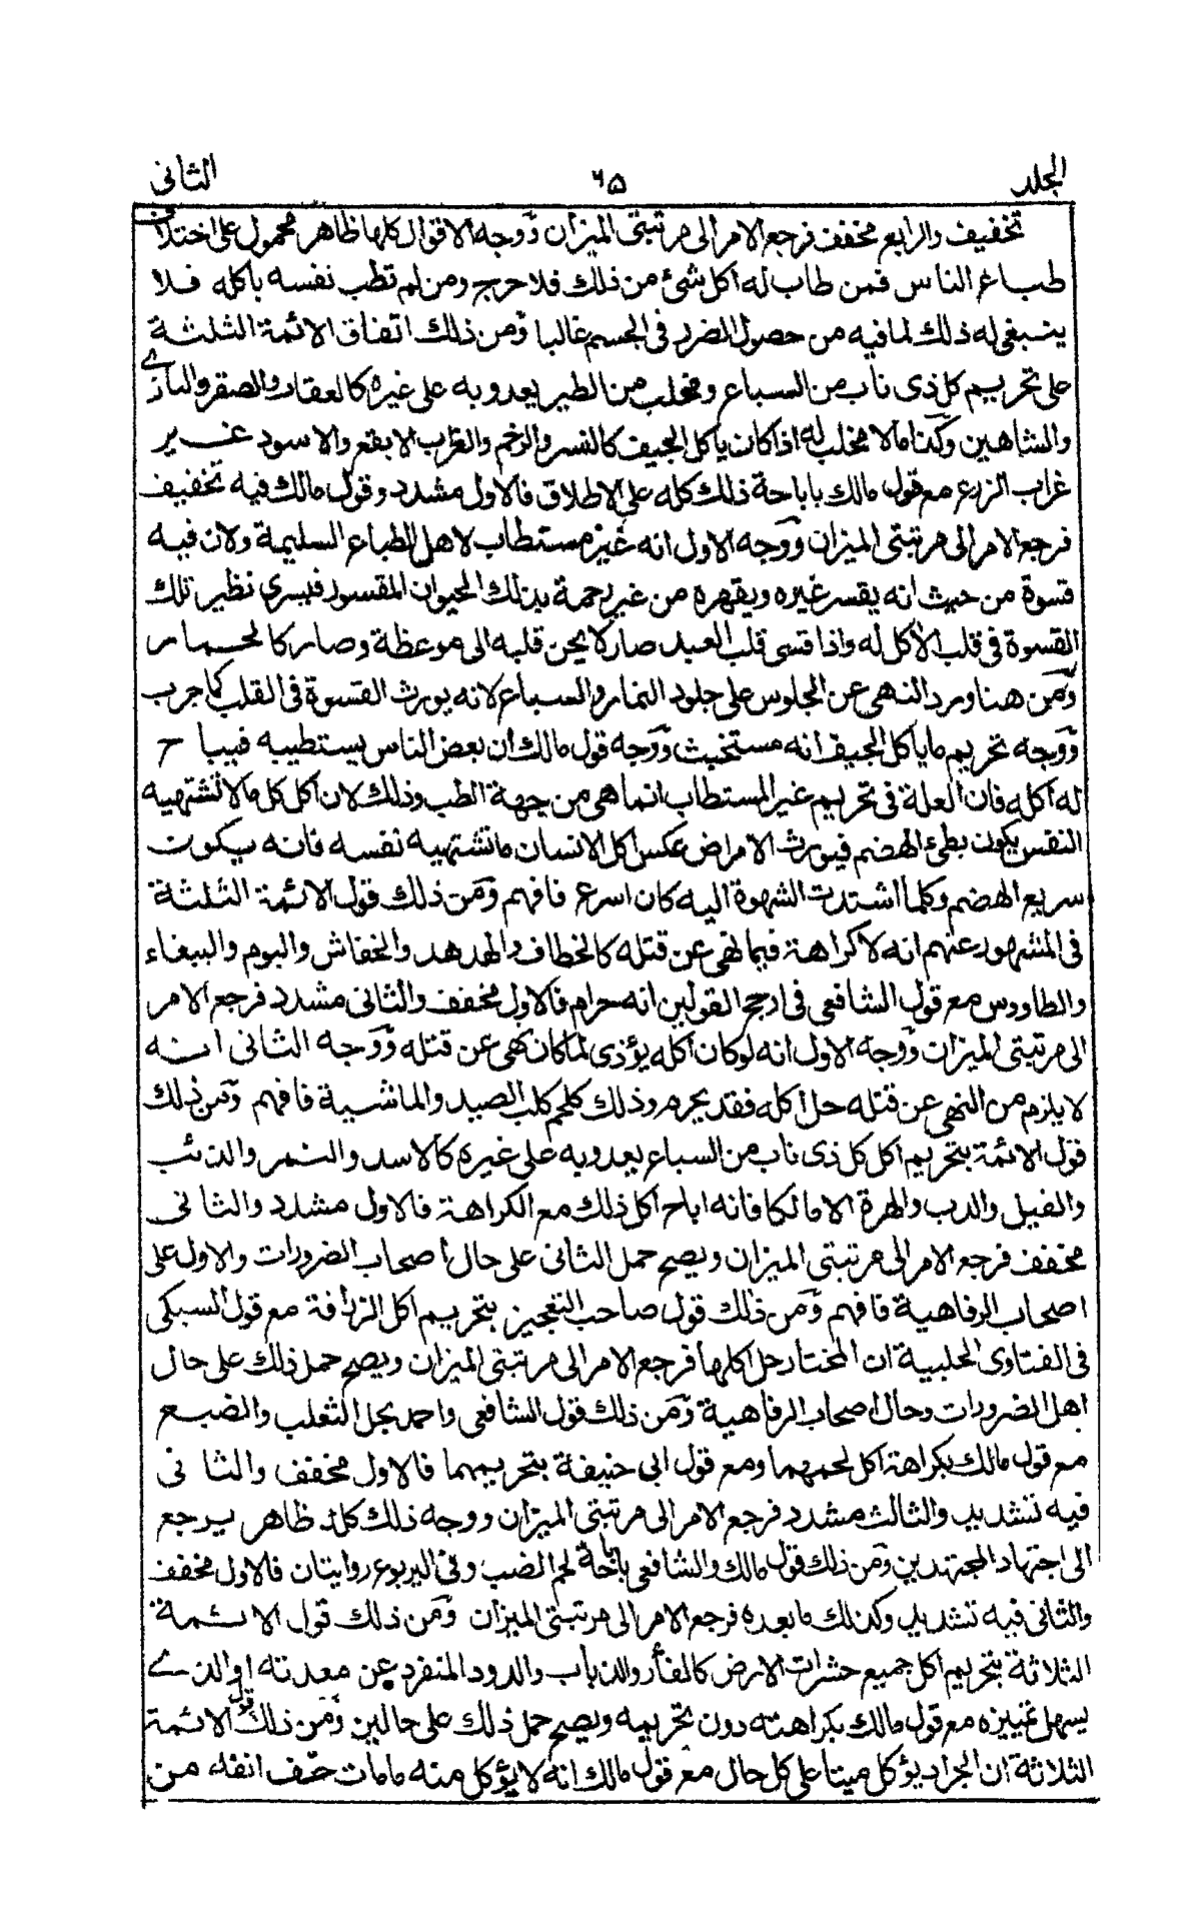 الجلد ٦٥ الثانى
تخفيف والرابع مخفف فرجع الامر الى مرتبتى الميزان ووجه الاقوال كلها ظاهر محمول على اختلاف
طباع الناس فمن طاب له اكل شئ من ذلك فلا حرج ومن لم تطب نفسه باكله فلا
ينبغى له ذلك لما فيه من حصول الضرر فى الجسم غالبا ومن ذلك اتفاق الائمة الثلثة
على تحريم كل ذى ناب من السباع ومخلب من الطير يعدو به على غيره كالعقاب والصقر والبازے
والشاهين وكذا ما لا مخلب له اذا كان ياكل الجيف كالنسر والرخم والغراب الابقع والاسود غير
غراب الزرع مع قول مالك باباحة ذلك كله على الاطلاق فالاول مشدد وقول مالك فيه تخفيف
فرجع الامر الى مرتبتى الميزان ووجه الاول انه غير مستطاب لاهل الطباع السليمة ولان فيه
قسوة من حيث انه يقسر غيره ويقهره من غير رحمة بذلك الحيوان المقسور فيسرى نظير تلك
القسوة فى قلب الاكل له واذا قسى قلب العبد صار لا يحن قلبه الى موعظة وصار كالحمار
ومن هنا ورد النهى عن الجلوس على جلود النمار والسباع لانه يورث القسوة فى القلب كما جرب
ووجه تحريم ما ياكل الجيف انه مستخبث ووجه قول مالك ان بعض الناس يستطيبه فيباح
له اكله فان العلة فى تحريم غير المستطاب انما هى من جهة الطب وذلك لان اكل كل ما لا تشتهيه
النفس يكون بطئ الهضم فيورث الامراض عكس اكل الانسان ما تشتهيه نفسه فانه يكون
سريع الهضم وكلما اشتدت الشهوة اليه كان اسرع فافهم ومن ذلك قول الائمة الثلثة
فى المشهور عنهم انه لا كراهة فيما نهى عن قتله كالخطاف والهدهد والخفاش والبوم والببغاء
والطاووس مع قول الشافعى فى ارجح القولين انه حرام فالاول مخفف والثانى مشدد فرجع الامر
الى مرتبتى الميزان ووجه الاول انه لو كان اكله يؤذى لما كان نهى عن قتله ووجه الثانى انه
لا يلزم من النهى عن قتله حل اكله فقد يحرم وذلك كلحم كلب الصيد والماشية فافهم ومن ذلك
قول الائمة بتحريم اكل كل ذى ناب من السباع يعدو به على غيره كالاسد والنمر والذئب
والفيل والدب والهرة الا مالكا فانه اباح اكل ذلك مع الكراهة فالاول مشدد والثانى
مخفف فرجع الامر الى مرتبتى الميزان ويصح حمل الثانى على حال اصحاب الضرورات والاول على
اصحاب الرفاهية فافهم ومن ذلك قول صاحب التعجيز بتحريم اكل الزرافة مع قول السبكى
فى الفتاوى الحلبية ان المختار حل اكلها فرجع الامر الى مرتبتى الميزان ويصح حمل ذلك على حال
اهل الضرورات وحال اصحاب الرفاهية ومن ذلك قول الشافعى واحمد بحل الثعلب والضبع
مع قول مالك بكراهة اكل لحمهما ومع قول ابى حنيفة بتحريمهما فالاول مخفف والثانى
فيه تشديد والثالث مشدد فرجع الامر الى مرتبتى الميزان ووجه ذلك كله ظاهر يرجع
الى اجتهاد المجتهدين ومن ذلك قول مالك والشافعى باباحة لحم الضب وفى اليربوع روايتان فالاول مخفف
والثانى فيه تشديد وكذلك ما بعده فرجع الامر الى مرتبتى الميزان ومن ذلك قول الائمة
الثلاثة بتحريم اكل جميع حشرات الارض كالفأر والذباب والدود المنفرد عن معدته او الذے
يسهل تمييزه مع قول مالك بكراهته دون تحريمه ويصح حمل ذلك على حالين ومن ذلك قول الائمة
الثلاثة ان الجراد يؤكل ميتا على كل حال مع قول مالك انه لا يؤكل منه ما مات حتف انفه من